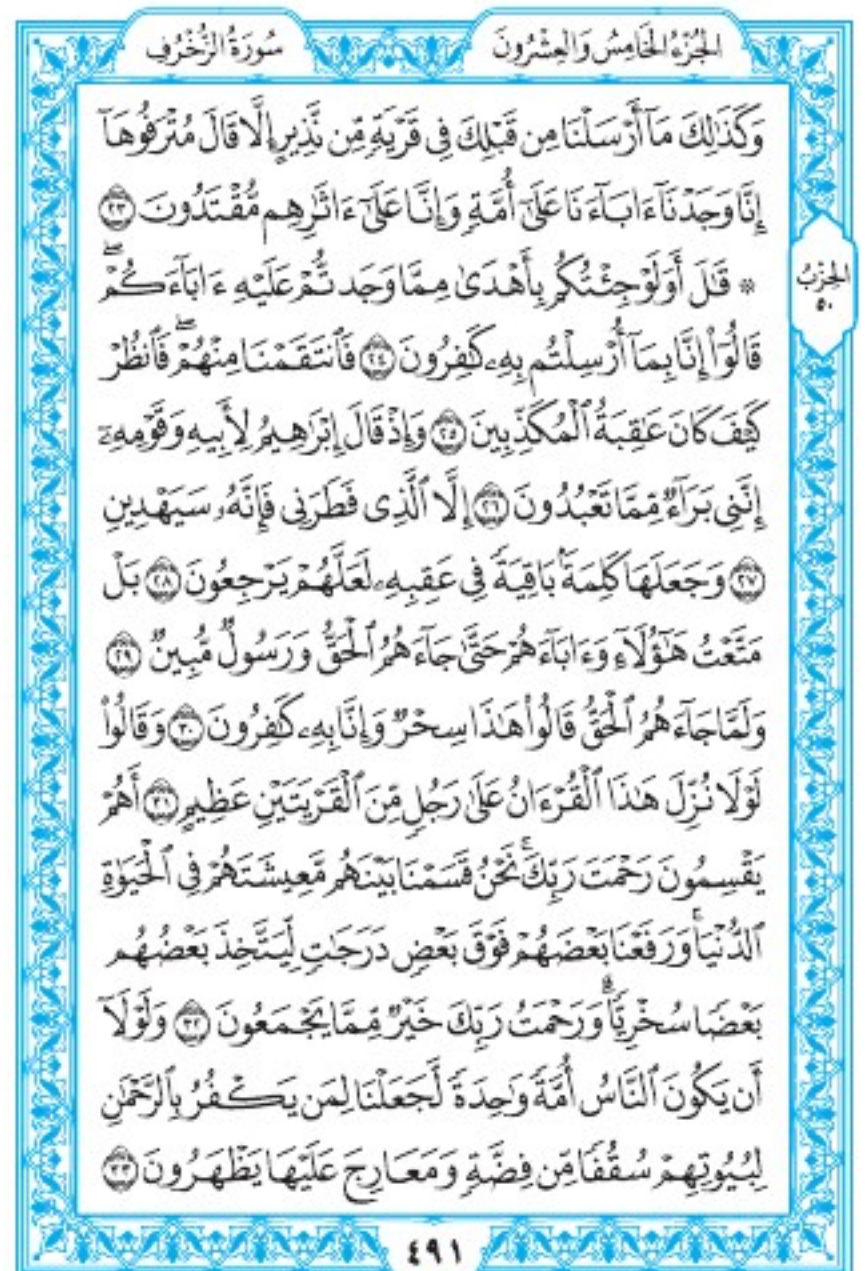 الجُزْءُ الخَامِسُ وَالعِشْرُونَ
سُورَةُ الزُّخْرُفِ
وَكَذَٰلِكَ مَآ أَرْسَلْنَا مِن قَبْلِكَ فِى قَرْيَةٍ مِّن نَّذِيرٍ إِلَّا قَالَ مُتْرَفُوهَآ
إِنَّا وَجَدْنَآ ءَابَآءَنَا عَلَىٰٓ أُمَّةٍ وَإِنَّا عَلَىٰٓ ءَاثَٰرِهِم مُّقْتَدُونَ ٢٣
۞ قَٰلَ أَوَلَوْ جِئْتُكُم بِأَهْدَىٰ مِمَّا وَجَدتُّمْ عَلَيْهِ ءَابَآءَكُمْۖ
قَالُوٓا۟ إِنَّا بِمَآ أُرْسِلْتُم بِهِۦ كَٰفِرُونَ ٢٤ فَٱنتَقَمْنَا مِنْهُمْۖ فَٱنظُرْ
كَيْفَ كَانَ عَٰقِبَةُ ٱلْمُكَذِّبِينَ ٢٥ وَإِذْ قَالَ إِبْرَٰهِيمُ لِأَبِيهِ وَقَوْمِهِۦٓ
إِنَّنِى بَرَآءٌ مِّمَّا تَعْبُدُونَ ٢٦ إِلَّا ٱلَّذِى فَطَرَنِى فَإِنَّهُۥ سَيَهْدِينِ
٢٧ وَجَعَلَهَا كَلِمَةًۢ بَاقِيَةً فِى عَقِبِهِۦ لَعَلَّهُمْ يَرْجِعُونَ ٢٨ بَلْ
مَتَّعْتُ هَٰٓؤُلَآءِ وَءَابَآءَهُمْ حَتَّىٰ جَآءَهُمُ ٱلْحَقُّ وَرَسُولٌ مُّبِينٌ ٢٩
وَلَمَّا جَآءَهُمُ ٱلْحَقُّ قَالُوا۟ هَٰذَا سِحْرٌ وَإِنَّا بِهِۦ كَٰفِرُونَ ٣٠ وَقَالُوا۟
لَوْلَا نُزِّلَ هَٰذَا ٱلْقُرْءَانُ عَلَىٰ رَجُلٍ مِّنَ ٱلْقَرْيَتَيْنِ عَظِيمٍ ٣١ أَهُمْ
يَقْسِمُونَ رَحْمَتَ رَبِّكَۚ نَحْنُ قَسَمْنَا بَيْنَهُم مَّعِيشَتَهُمْ فِى ٱلْحَيَوٰةِ
ٱلدُّنْيَاۚ وَرَفَعْنَا بَعْضَهُمْ فَوْقَ بَعْضٍ دَرَجَٰتٍ لِّيَتَّخِذَ بَعْضُهُم
بَعْضًا سُخْرِيًّاۗ وَرَحْمَتُ رَبِّكَ خَيْرٌ مِّمَّا يَجْمَعُونَ ٣٢ وَلَوْلَآ
أَن يَكُونَ ٱلنَّاسُ أُمَّةً وَٰحِدَةً لَّجَعَلْنَا لِمَن يَكْفُرُ بِٱلرَّحْمَٰنِ
لِبُيُوتِهِمْ سُقُفًا مِّن فِضَّةٍ وَمَعَارِجَ عَلَيْهَا يَظْهَرُونَ ٣٣
الحِزْبُ
٥٠
٤٩١